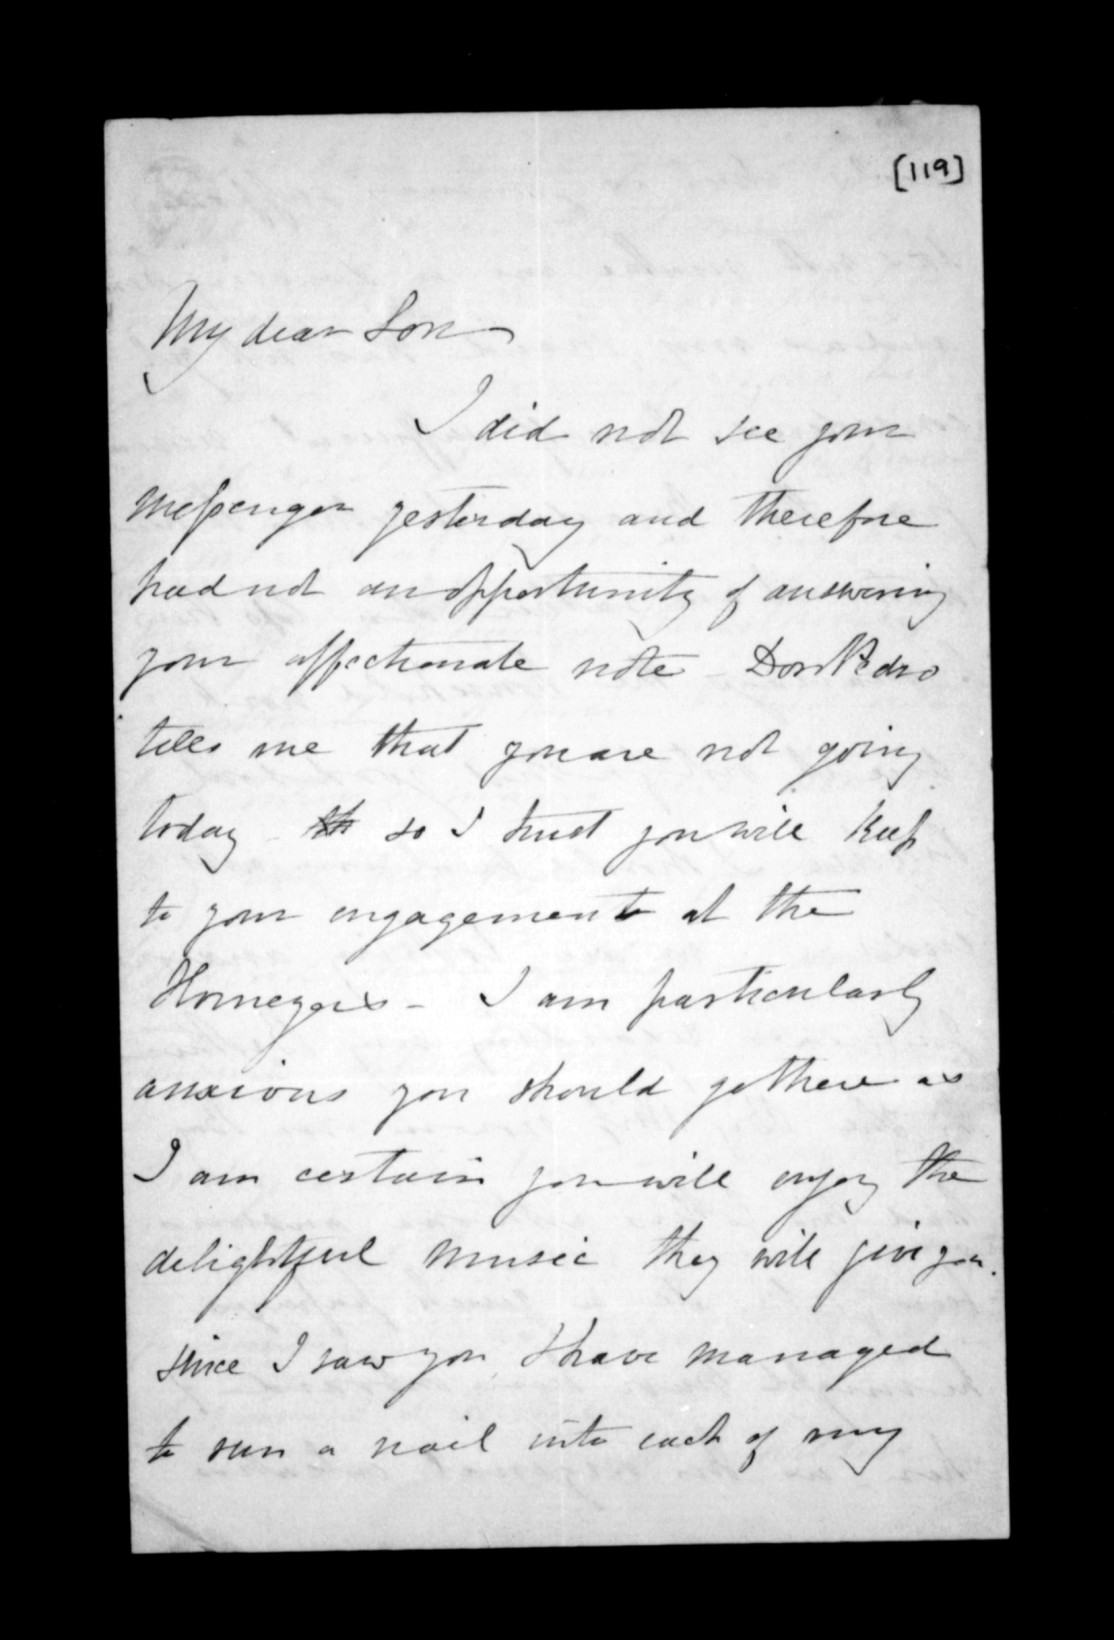 [119]
My dear Son
I did not see your
Messenger yesterday and therefore
had not an opportunity of answering
your affectionate note - Don Pedro
tells me that you are not going
today - so I trust you will keep
to your engagement at the
I am particularly
anxious you should go there as
I am certain you will enjoy the
delightful music they will give you.
since I saw you I have managed
to run a nail into each of my